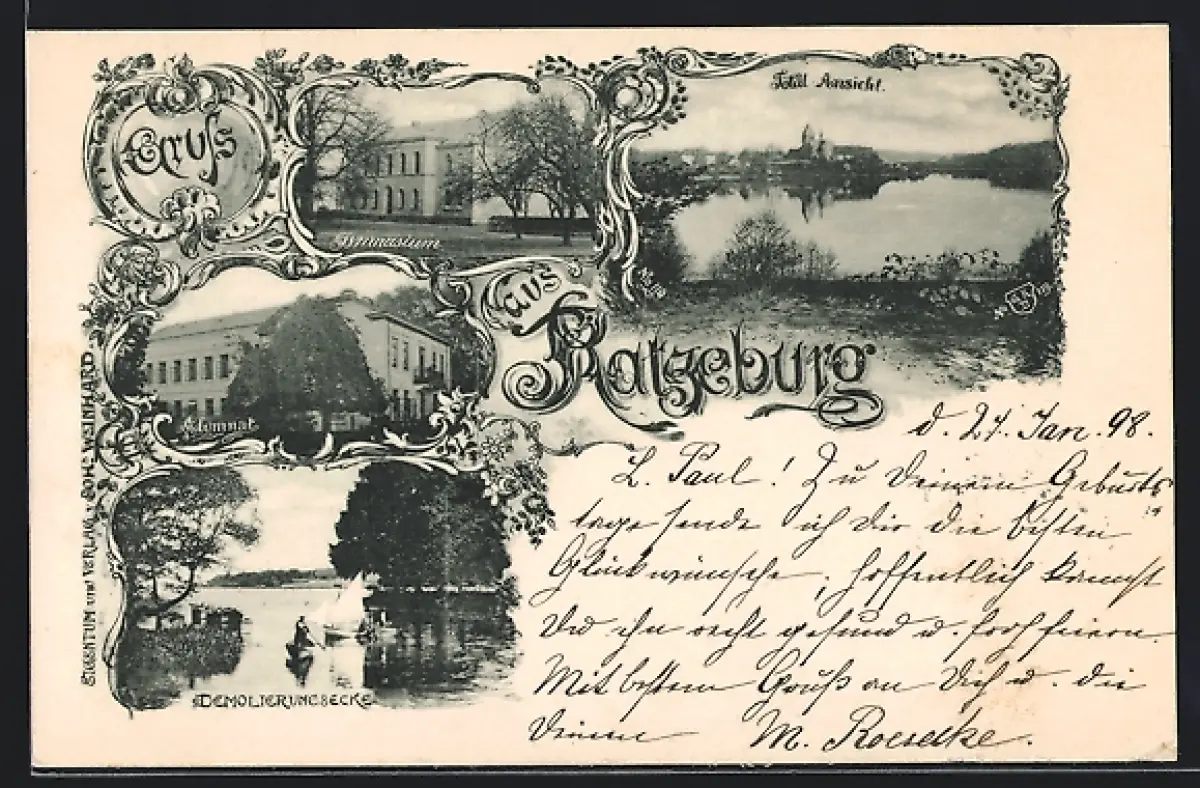 Gruss
Gymnasium
Total Ansicht.
aus
Ratzeburg
Alumnat
DEMOLIERUNGSECKE
EIGENTUM und VERLAG v. SOPHE WEINHARD
d. 27. Jan. 98.
L. Paul! Zu Deinem Geburts
tage sende ich Dir die besten
Glückwünsche, hoffentlich kannst
Du ihn recht gesund u. froh feiern.
Mit bestem Gruß an Dich u. die
Deinen M. Roesecke.